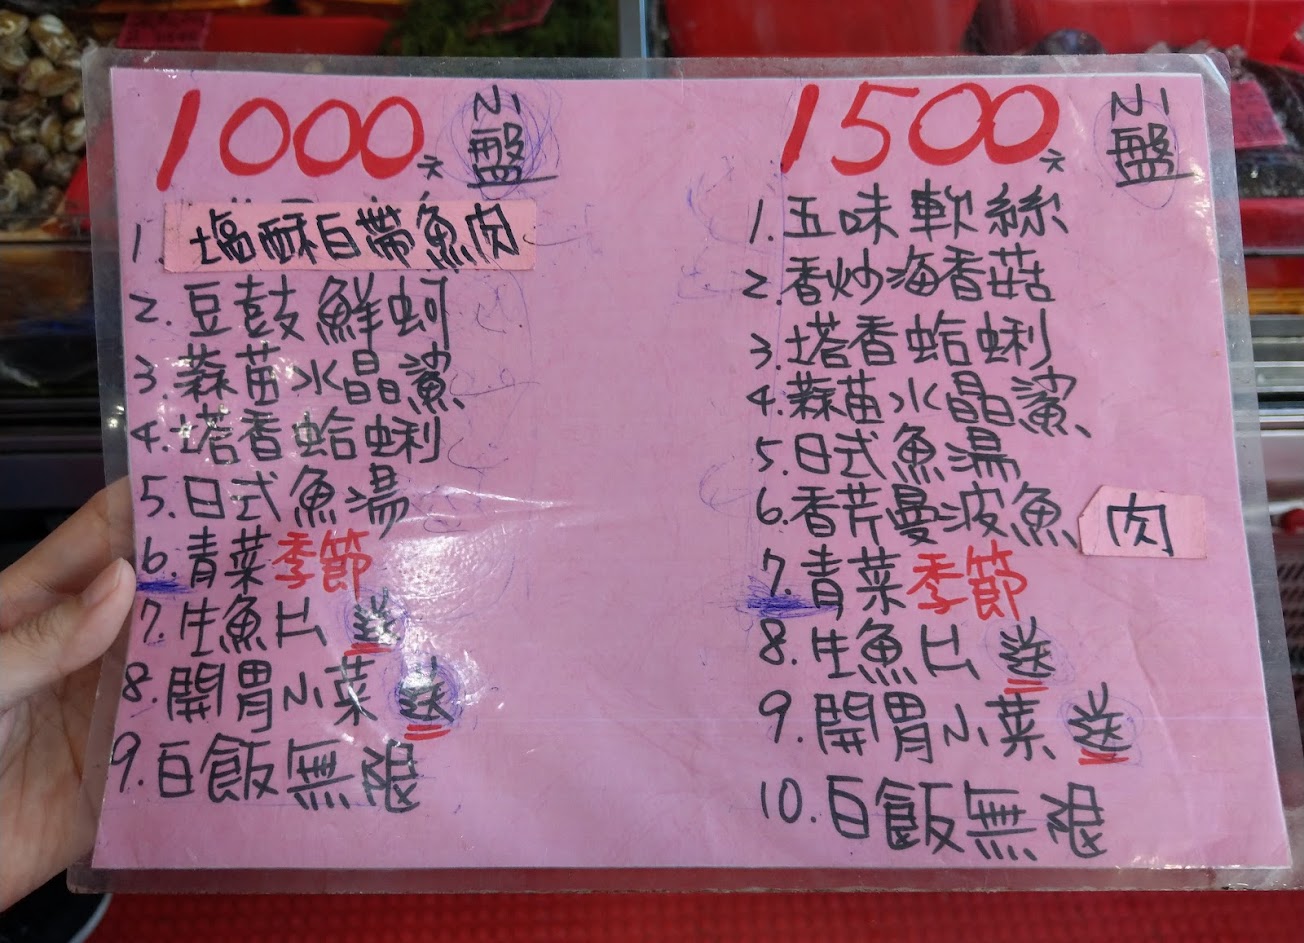 1000元 小盤
1. 塩酥白帶魚肉
2. 豆鼓鮮蚵
3. 蒜苗水晶鯊
4. 塔香蛤蜊
5. 日式魚湯
6. 青菜季節
7. 生魚片 送
8. 開胃小菜 送
9. 白飯無限
1500元 小盤
1. 五味軟絲
2. 香炒海香菇
3. 塔香蛤蜊
4. 蒜苗水晶鯊
5. 日式魚湯
6. 香芹曼波魚肉
7. 青菜季節
8. 生魚片 送
9. 開胃小菜 送
10. 白飯無限